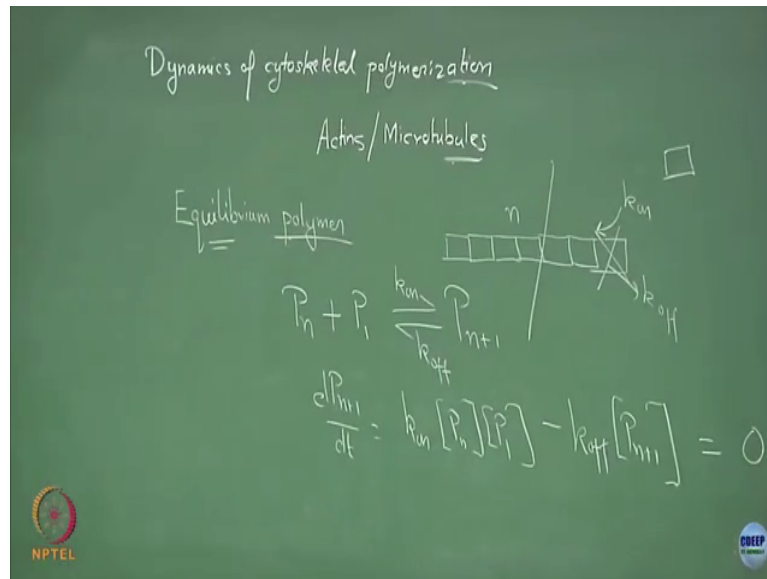 Dynamics of cytoskeletal polymerization
Actins/Microtubules
Equilibrium polymer
n
k_on
k_off
P_n + P_1 ⇌ P_{n+1}
k_on
k_off
dP_{n+1}/dt = k_on [P_n][P_1] - k_off [P_{n+1}] = 0
NPTEL
CDEEP